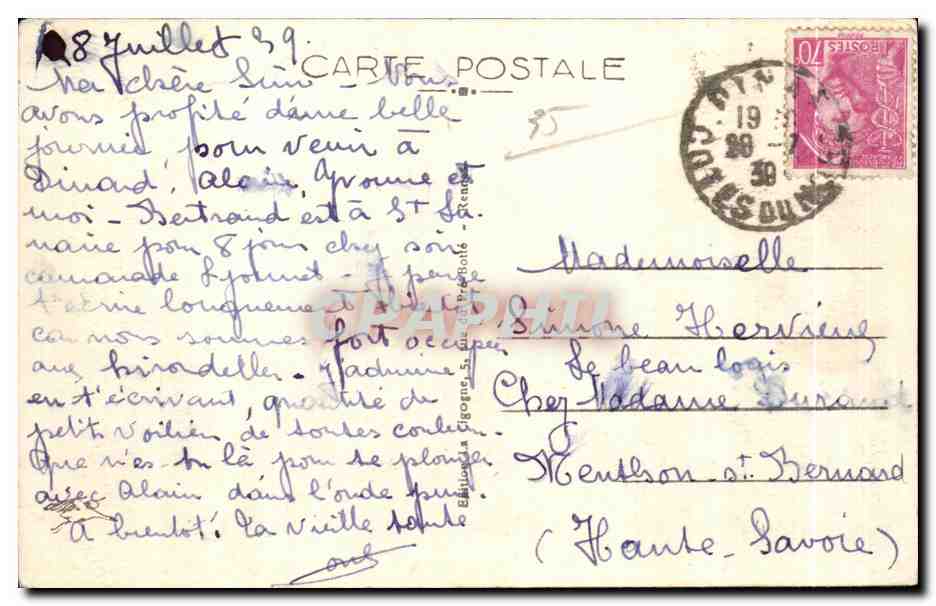 8 Juillet 39.
CARTE POSTALE
Ma chère Sim - Vous
avons profité d'une belle
journée pour venir à
Dinard, Alain, Yvonne et
moi - Bertrand est à St La-
naire pour 8 jours chez son
camarade - Je pense
t'écrire longuement
car nous sommes fort occupés
aux hirondelles. J'admire
en t'écrivant, quantité de
petits voiliers de toutes couleurs.
Que n'es tu là pour te plonger
avec Alain dans l'onde pure.
A bientôt. Ta vieille tante
35
DINARD
19
28 -7
39
COTES DU NORD
70
POSTES
Mademoiselle
Simone Hervieux
Le beau logis
Chez Madame Durand
Menthson st Bernard
(Haute-Savoie)
Edition La Cigogne, 5, rue du Pré-Botté - Rennes
CPAPHIL